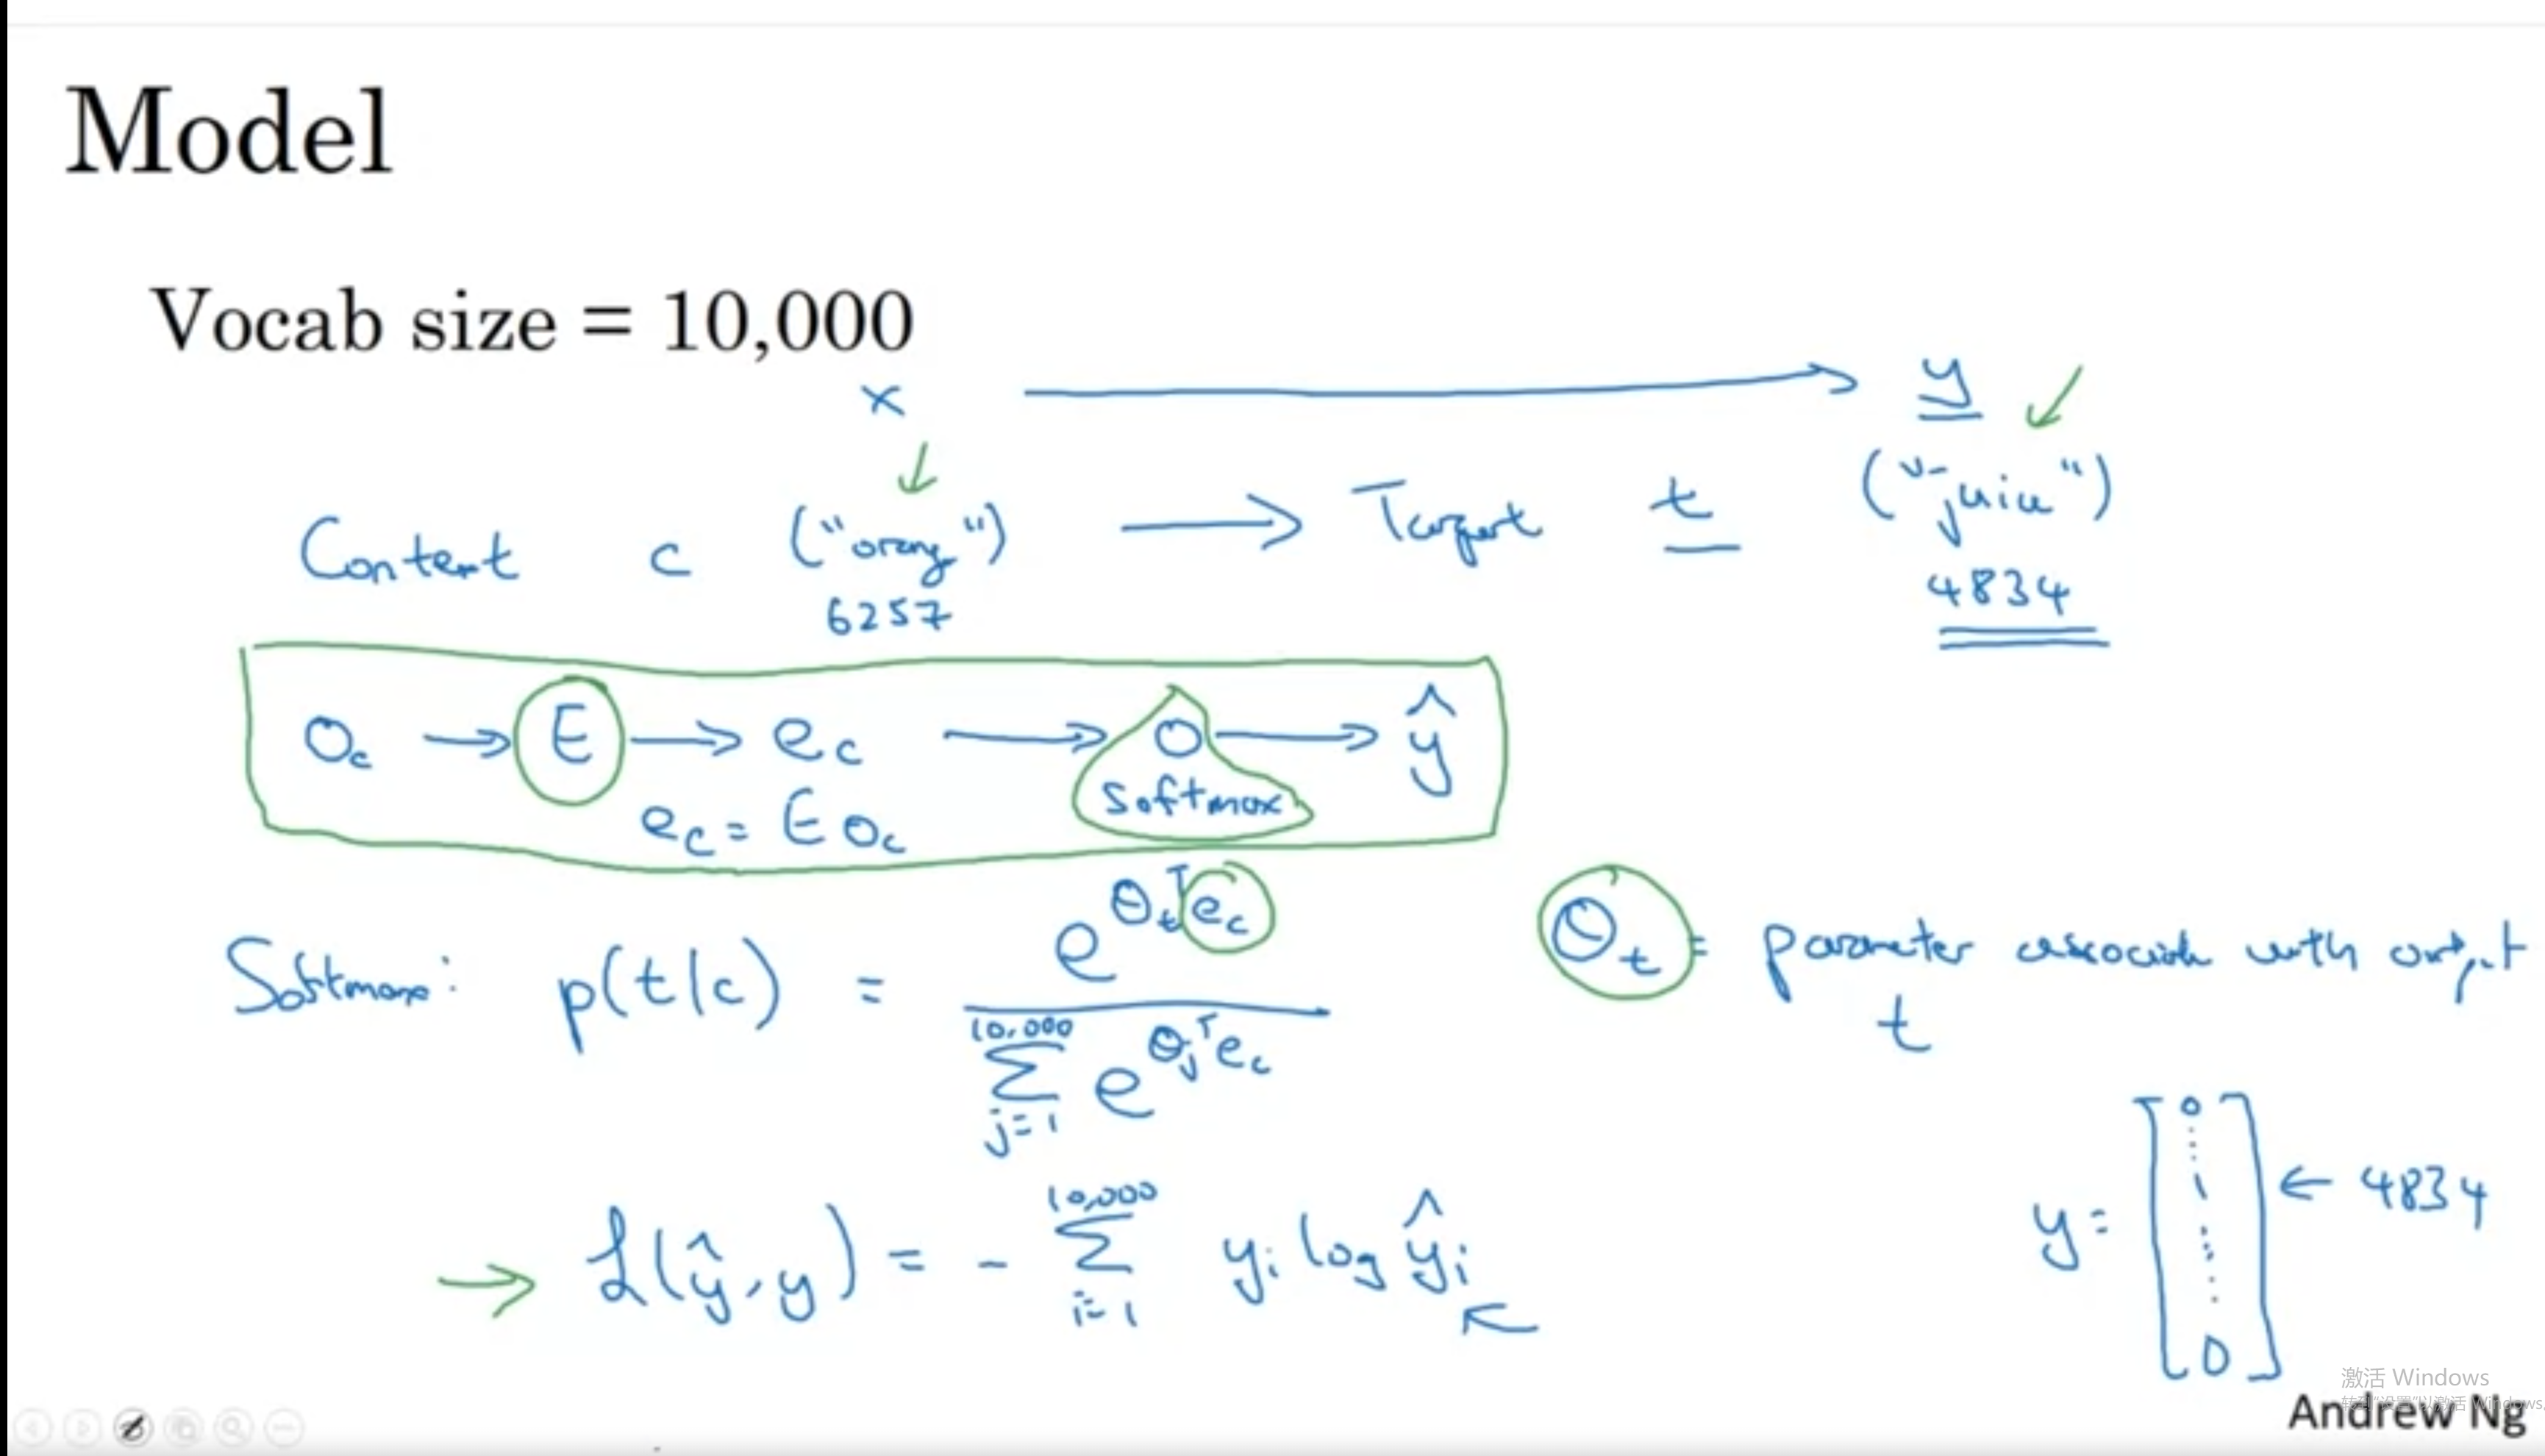 Model
Vocab size = 10,000
x → y
Content c ("orang") → Target t ("juice")
6257 4834
O_c → E → e_c → o → ŷ
softmax
e_c = E o_c
Softmax: p(t|c) = e^{θ_t^T e_c} / Σ_{j=1}^{10,000} e^{θ_j^T e_c}
θ_t = parameter associate with output
t
→ ℒ(ŷ, y) = - Σ_{i=1}^{10,000} y_i log ŷ_i ←
y = [0 ⋮ 1 ⋮ 0] ← 4834
激活 Windows
转到"设置"以激活 Windows。
Andrew Ng